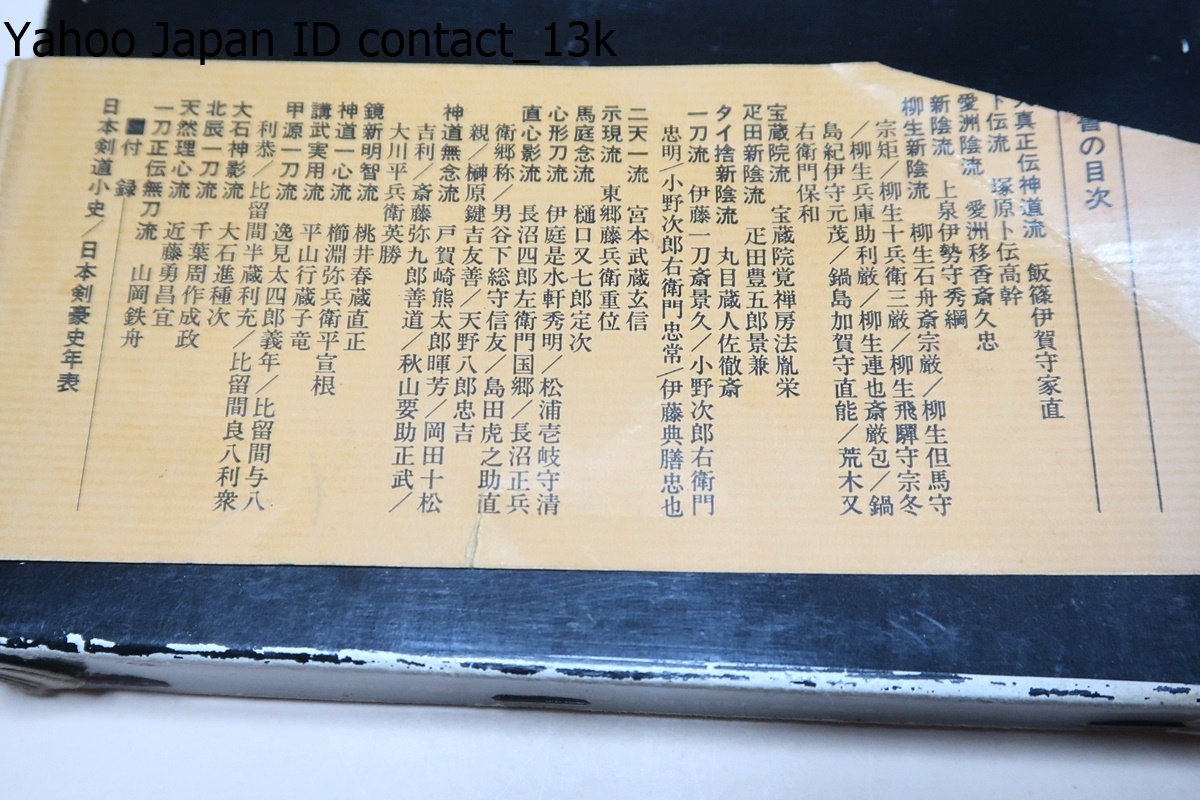 Yahoo Japan ID contact_13k
書の目次
真正伝神道流 飯篠伊賀守家直
卜伝流 塚原卜伝高幹
愛洲陰流 愛洲移香斎久忠
新陰流 上泉伊勢守秀綱
柳生新陰流 柳生石舟斎宗厳／柳生但馬守
宗矩／柳生十兵衛三厳／柳生飛驒守宗冬
／柳生兵庫助利厳／柳生連也斎厳包／鍋
島紀伊守元茂／鍋島加賀守直能／荒木又
右衛門保和
宝蔵院流 宝蔵院覚禅房法胤栄
疋田新陰流 疋田豊五郎景兼
タイ捨新陰流 丸目蔵人佐徹斎
一刀流 伊藤一刀斎景久／小野次郎右衛門
忠明／小野次郎右衛門忠常／伊藤典膳忠也
二天一流 宮本武蔵玄信
示現流 東郷藤兵衛重位
馬庭念流 樋口又七郎定次
心形刀流 伊庭是水軒秀明／松浦壱岐守清
直心影流 長沼四郎左衛門国郷／長沼正兵
衛郷称／男谷下総守信友／島田虎之助直
親／榊原鍵吉友善／天野八郎忠吉
神道無念流 戸賀崎熊太郎暉芳／岡田十松
吉利／斎藤弥九郎善道／秋山要助正武／
大川平兵衛英勝
鏡新明智流 桃井春蔵直正
神道一心流 櫛淵弥兵衛平宣根
講武実用流 平山行蔵子竜
甲源一刀流 逸見太四郎義年／比留間与八
利恭／比留間半蔵利充／比留間良八利衆
大石神影流 大石進種次
北辰一刀流 千葉周作成政
天然理心流 近藤勇昌宜
一刀正伝無刀流 山岡鉄舟
付録
日本剣道小史／日本剣豪史年表